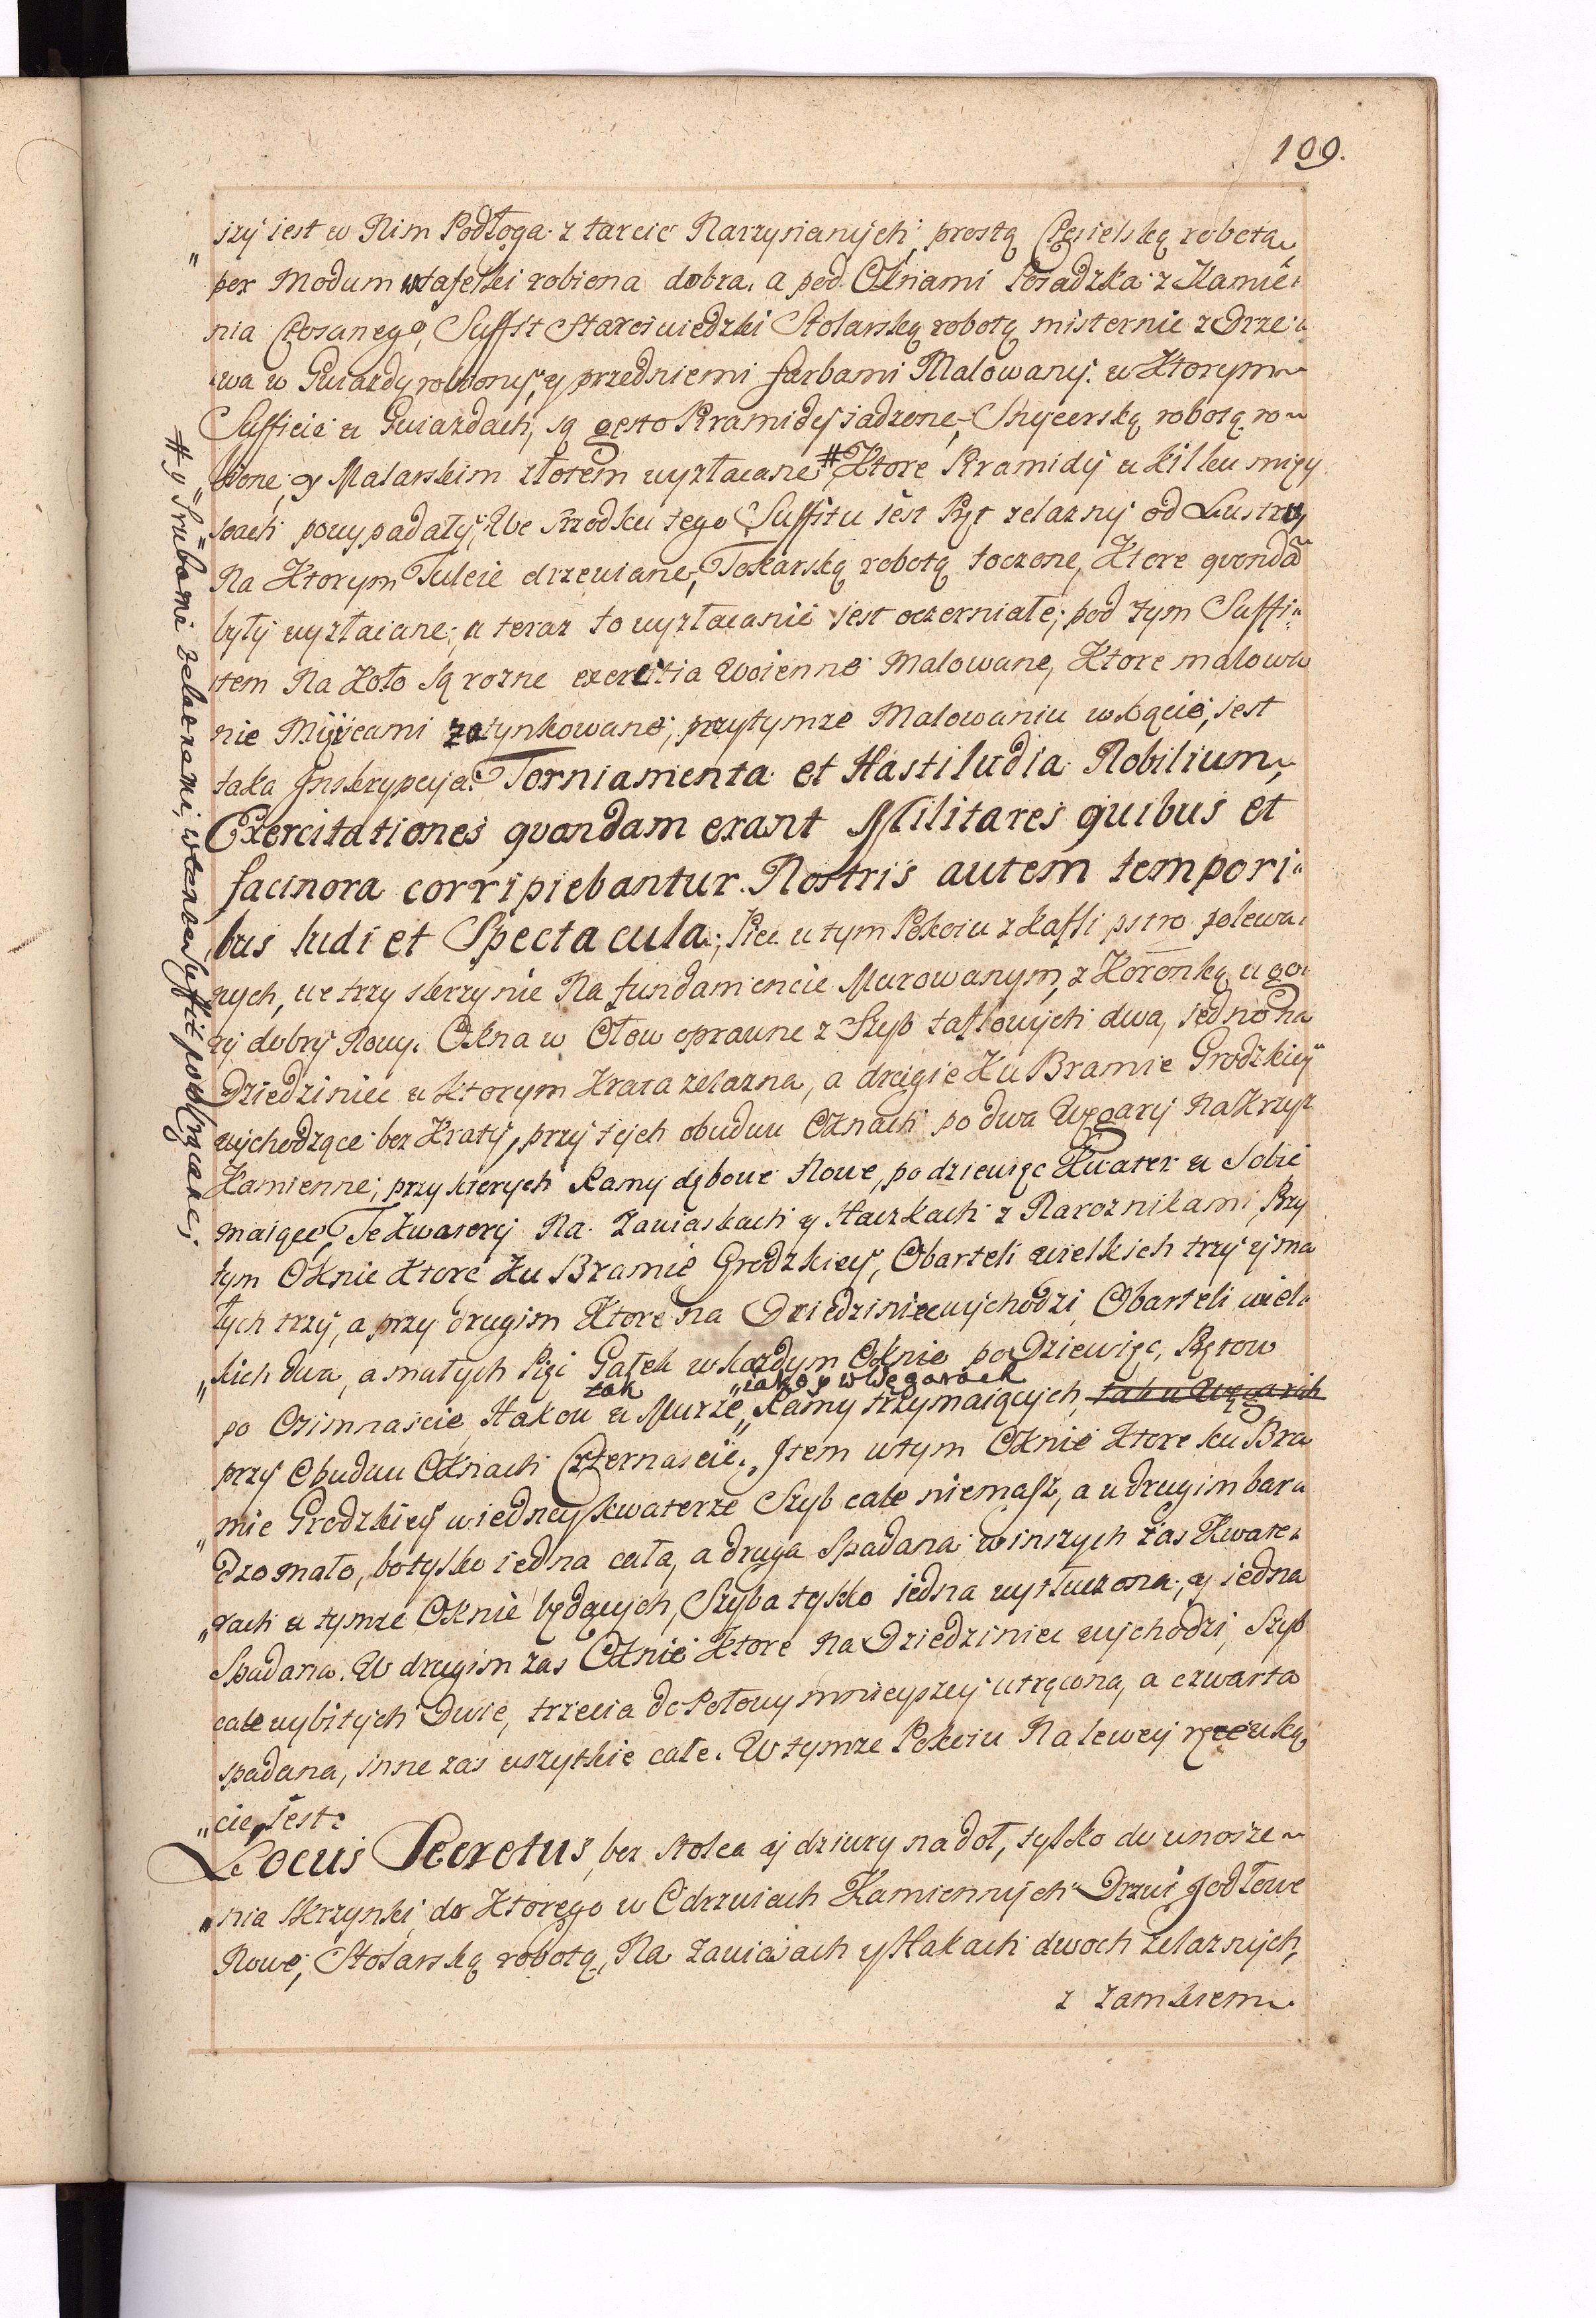 109.
szy iest w Nim Podłoga z tarcic Narzynanych, prostą Ciesielską robotą
„per modum w tafelki robiona dobra, a pod Oknami Posadzka z Kamie„
nia Ciosanego, Suffit Staroswiedzki Stolarską robotą misternie z Drze„
„wa w Gwiazdy robiony, y przedniemi farbami Malowany. w Ktorym
Sufficie w Gwiazdach, są gęsto Piramidy sadzone, Snycerską robotą ro„
„bione, y Malarskim złotem wyzłacane # Ktore Piramidy w kilku miey„
scach powypadały, We Srzodku tego Suffitu iest Pręt zelazny od Lustry
Na Ktorym Tulcie drzewiane, Tokarską robotą toczone, Ktore qvondã
były wyzłacane, a teraz to wyzłacanie iest oczerniałe; pod tym Suffi„
„tem Na Koło są rozne exercitia Woienne Malowane, Ktore malowa
nie Mieyscami zatynkowane, przytymze Malowaniu w kącie, iest
taka Inskrypcya: Torniamenta et Hastiludia Nobilium,
Exercitationes qvondam erant Militares quibus et
facinora corripiebantur. Nostris autem tempori„
bus ludi et Spectacula; Piec w tym Pokoiu z kafli pstro polewa„
nych, we trzy skrzynie Na fundamencie Murowanym, z Koronką w go„
ry dobry Nowy. Okna w Ołow oprawne z Szyb taflowych dwa, iedno na
Dziedziniec w ktorym Krata zelazna, a drugie Ku Bramie Grodzkiey
wychodzące bez Kraty, przy tych obudwu Oknach po dwa Węgary Na Krzyz
Kamienne, przy kterych Ramy dębowe Nowe, po dziewięc Kwater w Sobie
maiące, Te Kwatery Na Zawiaskach y Haczkach z Naroznikami, Przy
tym Oknie Ktore Ku Bramie Grodzkiey, Obarteli wielkich trzy y ma
łych trzy, a przy drugim Ktore na Dziedziniec wychodzi, Obarteli wiel„
„kich dwa, a małych Pięc Gałek w kazdym Oknie po Dziewięc, Prętow
po Osimnascie, Hakow tak w Murze, „iako y w Węgarach Ramy trzymaiących, tak w Węgarach
przy Obudwu Oknach Czternascie. Item w tym Oknie Ktore ku Bra
„mie Grodzkiey w iedney kwaterze Szyb cale niemasz, a w drugim bar„
dzo mało, bo tylko iedna cała, a druga Spadana w inszych zas Kwate„
„rach w tymze Oknie będących, Szyba tylko iedna wytłuczona, y iedna
Spadana. W drugim zas Oknie Ktore Na Dziedziniec wychodzi, Szyb
cale wybitych Dwie, trzecia do Połowy mnieyszey utrącona, a czwarta
spadana, inne zas wszytkie całe. W tymze Pokoiu Na lewey ręce w ką„
„cie, iest:
Locus Secretus, bez stolca y dziury na doł, tylko do unosze„
„nia Skrzynki, do Ktorego w Odrzwiach Kamiennych Drzwi Jodłowe
Nowe, Stolarską robotą, Na Zawiasach y Hakach dwoch zelaznych,
z zamkiem
# y Srubami zelaznemi, w tenze Suffit powkręcane;